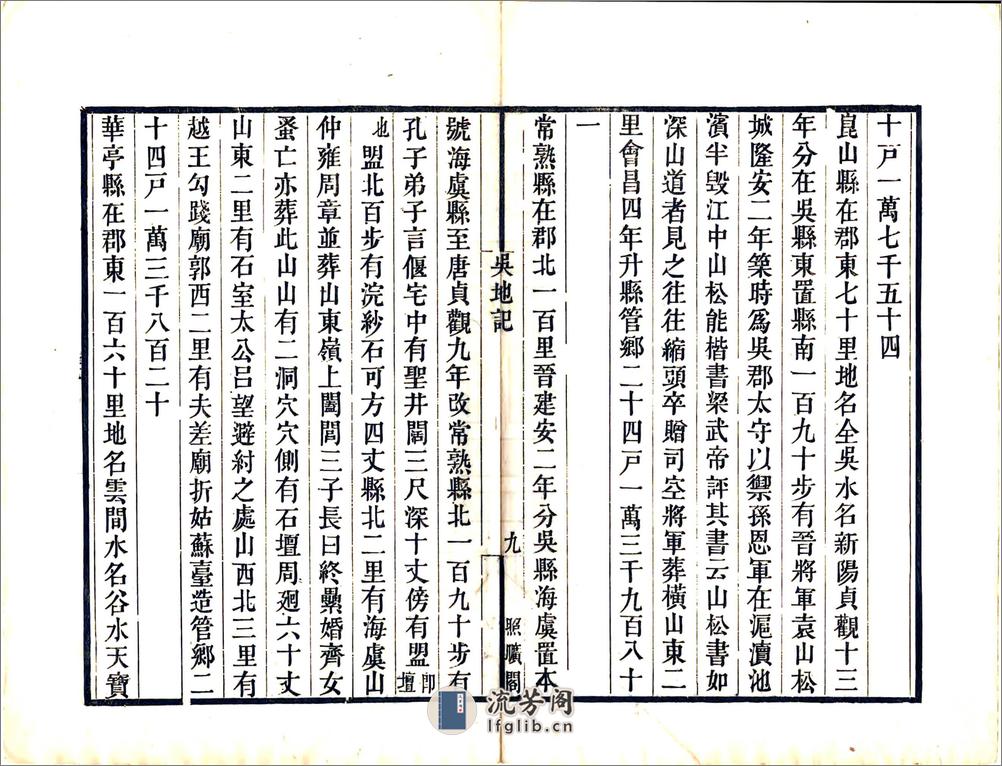 十戸一萬七千五十四
崑山縣在郡東七十里地名全吳水名新陽貞觀十三
年分在吳縣東置縣南一百九十步有晉將軍袁山松
城隆安二年築時爲吳郡太守以禦孫恩軍在滬瀆池
濱半毀江中山松能楷書梁武帝評其書云山松書如
深山道者見之往往縮頭卒贈司空將軍葬橫山東二
里會昌四年升縣管鄉二十四戸一萬三千九百八十
一
常熟縣在郡北一百里晉建安二年分吳縣海虞置本
吳地記
九
照曠閣
號海虞縣至唐貞觀九年改常熟縣北一百九十步有
孔子弟子言偃宅中有聖井闊三尺深十丈傍有盟卽壇
也盟北百步有浣紗石可方四丈縣北二里有海虞山
仲雍周章並葬山東嶺上闔閭三子長曰終纍婚齊女
蚤亡亦葬此山山有二洞穴穴側有石壇周廻六十丈
山東二里有石室太公呂望避紂之處山西北三里有
越王勾踐廟郭西二里有夫差廟折姑蘇臺造管鄉二
十四戸一萬三千八百二十
華亭縣在郡東一百六十里地名雲間水名谷水天寶
流芳阁
lfglib.cn